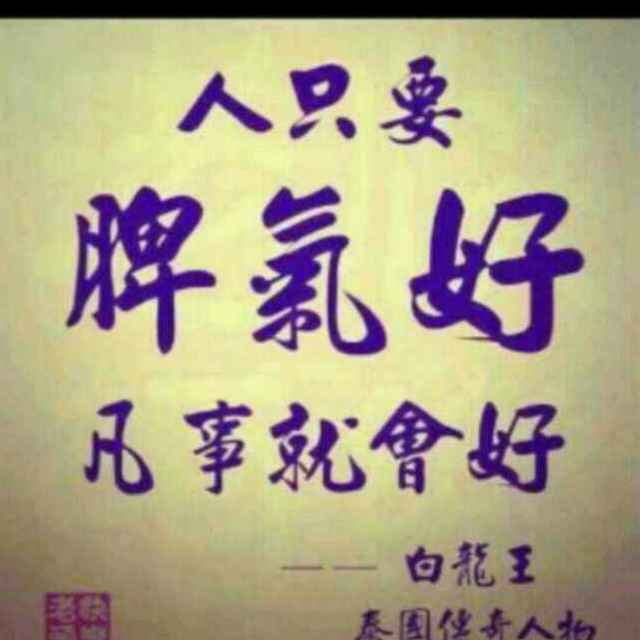 人只要
脾氣好
凡事就會好
—— 白龍王
泰國傳奇人物